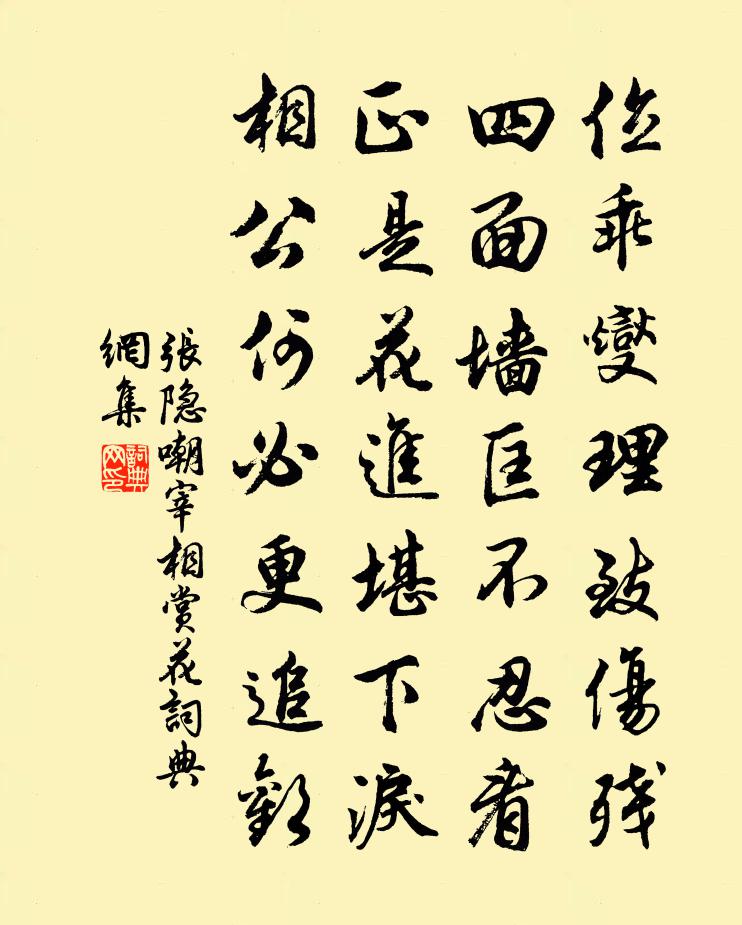 位乖燮理致傷残
四面墙匡不忍看
正是花進堪下淚
相公何必更追歡
張隐嘲宰相賞花詞典
網集
詞典網印